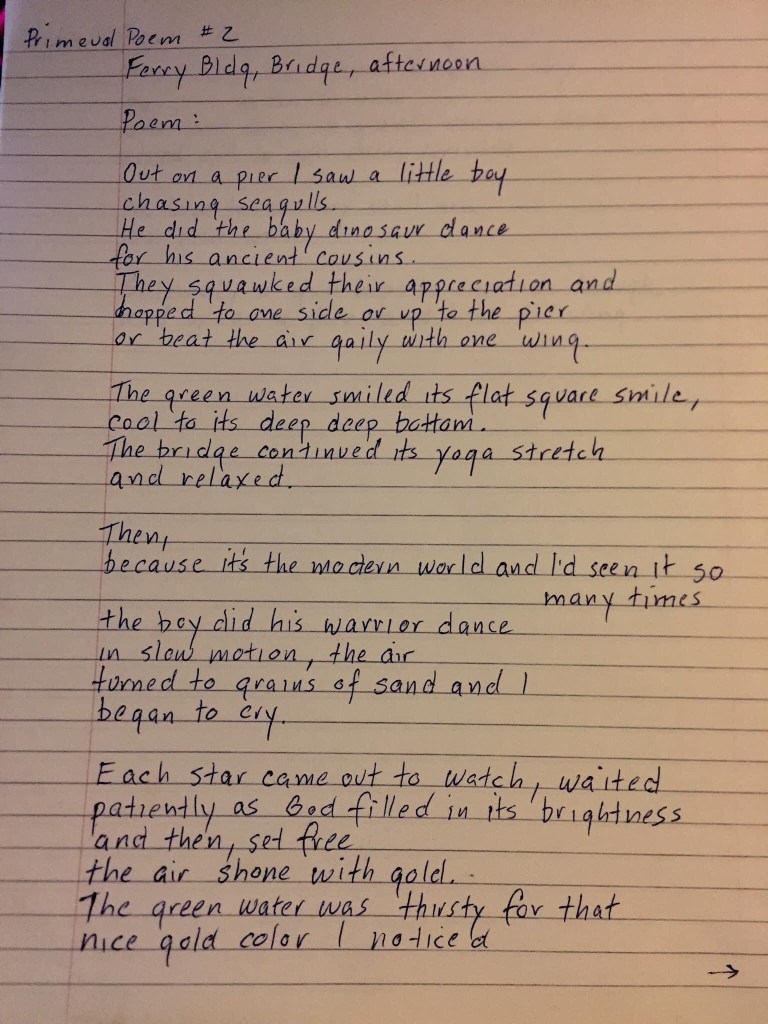 Primeval Poem #2
Ferry Bldg, Bridge, afternoon
Poem:
Out on a pier I saw a little boy
chasing seagulls.
He did the baby dinosaur dance
for his ancient cousins.
They squawked their appreciation and
hopped to one side or up to the pier
or beat the air gaily with one wing.
The green water smiled its flat square smile,
cool to its deep deep bottom.
The bridge continued its yoga stretch
and relaxed.
Then,
because it's the modern world and I'd seen it so
many times
the boy did his warrior dance
in slow motion, the air
turned to grains of sand and I
began to cry.
Each star came out to watch, waited
patiently as God filled in its brightness
and then, set free
the air shone with gold.
The green water was thirsty for that
nice gold color I noticed
→